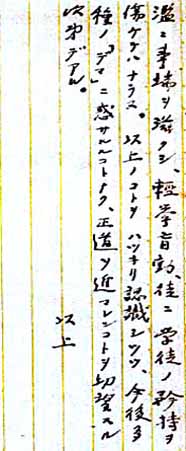 濫ニ事端ヲ滋クシ、輕擧盲動、徒ニ学徒ノ矜持ヲ
傷ケテハナラヌ。以上ノコトヲハツキリ認識シツヽ、今後多
種ノ「デマ」ニ惑サルルコトナク、正道ヲ近マレンコトヲ切望スル
次第デアル。
以上